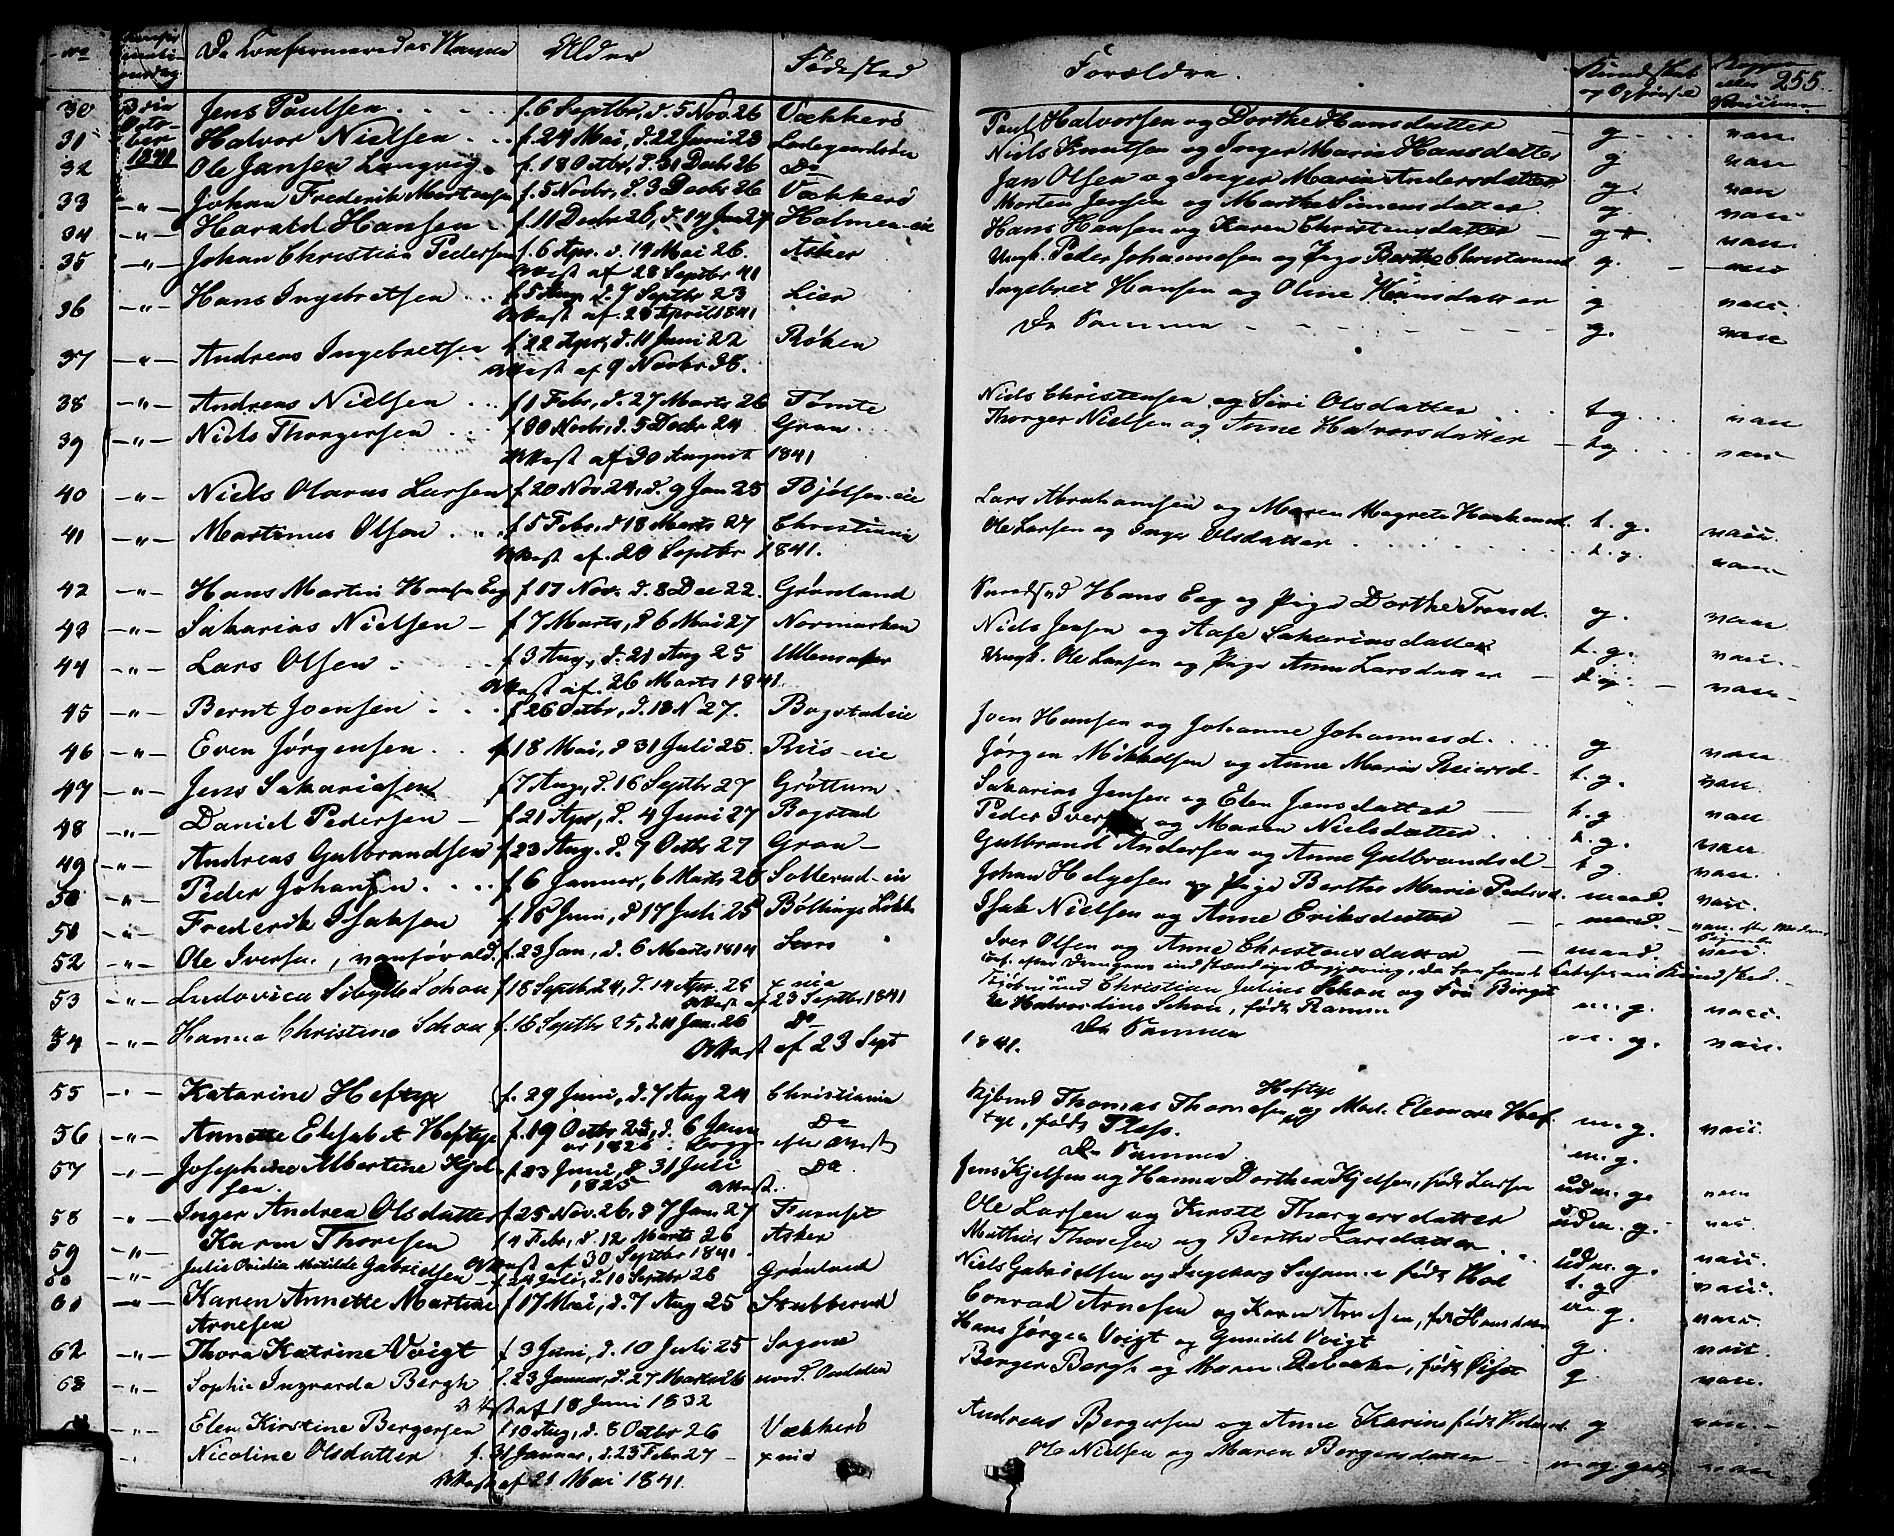 No Confirmationsdag De Confirmeredes Navne Alder Fødested Forældre Kundskab og Opførsel Koppe eller Vaccine 255.
30 3die Octo- Jens Paulsen f. 6 Septbr, d. 5 Nov. 26 Vækkerö Paul Halvorsen og Dorthe Hansdatter g vacc.
31 ber Halvor Nielsen f. 24 Mai, d. 22 Juni 23 Ladegaardsöen Niels Knutsen og Inger Maria Hansdatter g vacc
32 1841 Ole Jansen Langvig f. 18 Octbr, d. 31 Decbr 26 Do Jan Olsen og Inger Maria Andersdatter g. vacc
33 -"- Johan Frederik Mortensen f. 5 Novbr, d. 3 Decbr 26 Vækkerö Morten Jensen og Marthe Simensdatter g. vacc
34 -"- Harald Hansen f. 11 Decbr 26, d. 14 Jan 27 Holmen-eie Hans Hansen og Karen Christensdatter g vacc.
35 -"- Johan Christian Pedersen f. 6 Apr. d. 19 Mai 26. Asker Ungk. Peder Johannesen og Pige Berthe Christiansd g. vacc
Attest af 28 Septbr 41
36 -"- Hans Ingebretsen f. 5 Aug. d. 7 Septbr 23 Lier Ingebret Hansen og Oline Hansdatter g vacc.
Attest af. 28 April 1841
37 -"- Andreas Ingebretsen f. 22 Apr, d. 11 Juni 22 Röken De Samme g. vacc
Attest af 9 Novbr 38.
38 -"- Andreas Nielsen f. 1 Febr, d. 27 Marts 26 Tömte Niels Christensen og Siri Olsdatter t g vacc
39 -"- Niels Thorgersen f. 30 Novbr, d. 5 Decbr 24 Gran Thorger Nielsen og Anne Halvorsdatter t g vacc
Attest af 30 August 1841
40 -"- Niels Olavus Larsen f. 20 Nov. 24, d. 9 Jan 25 Bjölsen-eie Lars Abrahamsen og Maren Magrete Haakensd. t. g. vacc.
41 -"- Martinus Olsen f. 5 Febr, d 18 Marts 27 Christiania Ole Larsen og Inger Olsdatter t. g. vacc
Attest af. 20 Septbr 1841.
42 -"- Hans Martin Hansen Eeg f. 17 Nov. d. 8 Dec 22. Grönland Hans Eeg og Pige Dorthe Tronsd. g. vacc
43 -"- Sakarias Nielsen f. 7 Marts, d 6 Mai 27 Normarken Niels Jensen og Aase Sakariasdatter t. g. vacc.
44 -"- Lars Olsen f. 3 Aug, d. 21 Aug 25 Ullensaker Ungk. Ole Larsen og Pige Anne Larsdatter t. g. vacc
Attest af. 26 Marts 1841.
45 -"- Bernt Joensen f. 26 Octbr, d. 18 N 27. Bogstadeie Joen Hansen og Johanne Johannesd. g vacc
46 -"- Even Jörgensen f. 18 Mai, d 31 Juli 25. Riis-eie Jörgen Mikkelsen og Anne Maria Reiersd. t. g. vacc.
47 -"- Jens Sakariasen f 7 Aug, d. 16 Septbr 27 Gröttum Sakarias Jensen og Elen Jensdatter t. g vacc
48 -"- Daniel Pedersen f. 21 Apr, d. 4 Juni 27 Bogstad Peder Iversen og Maren Nielsdatter t. g. vacc
49 -"- Andreas Gulbrandsen f. 23 Aug. d. 7 Octbr 27 Gran Gulbrand Andersen og Anne Gulbrandsd t g. vacc.
50 -"- Peder Johansen f. 6 Januar, 6 Marts 26 Sollerud-eie Johan Helgesen og Pige Berthe Marie Pedersd. maad. vacc.
51 -"- Frederik Isaksen f. 15 Juni, d 17 Juli 25 Böltings Lökke Isak Nielsen og Anne Eriksdatter maad.
52 -"- Ole Iversen, vanför ald. f. 23 Jan, d. 6 Marts 1814 Iver Olsen og Anne Christensdatter maad vacc.
Conf. efter Drengens indstændige Begjæring, da han
53 -"- Ludovica Sibylle Schou f 18 Septbr 24, d. 14 Apr. 25 Christian Julius Schou og Fru Birgit-
Attest af 23 Septbr 1841 te Halvordine Schou, födt Ramm m. g. vacc.
54 -"- Hanna Christine Schou f. 16 Septbr 25, d. 11 Jan. 26 Do De Samme m. g. vacc.
Attest af 23 Sept 1841.
55 -"- Katarine Heftye f. 29 Juni, d. 7 Aug 24 Christiania Kjöbmd Thomas Thomesen Heftye og Mad. Eleonore Hef-
tye, födt Fless. m. g. vacc.
56 -"- Annette Elisabet Heftye f. 19 Octbr 25, d. 6 Janu Do De Samme m. g.
ar 1826
57 -"- Josephine Albertine Kjel- f. 23 Juni, d 31 Juli Do Jens Kjelsen og Hanna Dorthea Kjelsen, födt Larsen udm. g. vacc
sen 1825 Attest.
58 -"- Inger Andrea Olsdatter f. 25 Nov. 26, d 7 Jan. 27 Ole Larsen og Kirsti Thorgersdatter udm. g. vac
59 -"- Karen Thoresen f 4 Febr, d. 12 Marts 26 Asker Mathias Thoresen og Berthe Larsdatter udm. g. vacc.
Attest af 30 Septbr 1841.
60 -"- Julie Ovidia Matilde Gabrielsen f 24 Juli, d. 10 Septbr 26 Grönland Niels Gabrielsen og Ingeborg födt Hol t. g vacc.
61 -"- Karen Annette Martine f 17 Mai, d. 7 Aug 25 Stubberud Conrad Arnesen og Karen Arnesen, födt Hansdatter m. g. vacc.
Arnesen
62 -"- Thora Katrine Voigt f. 3 Juni, d. 10 Juli 25 Sagene Hans Jörgen Voigt og Gunild Voigt g. vacc
63 -"- Sophie Ingvarda Bergh f. 23 Januar, d. 27 Marts 26 Berger Bergh og Maren Rebekka, födt g vacc.
Att. af 18 Juni 1832
-"- Elen Kirstine Bergersen f 10 Aug, d. 8 Octbr 26 Vækkerö Andreas Bergersen og Anne Karine födt g vacc.
Nicoline Olsdatter f. 31 Januar, d. 23 Febr 27 Ole Nielsen og Maren Bergersdatter vacc
Attest af 21 Mai 1841.